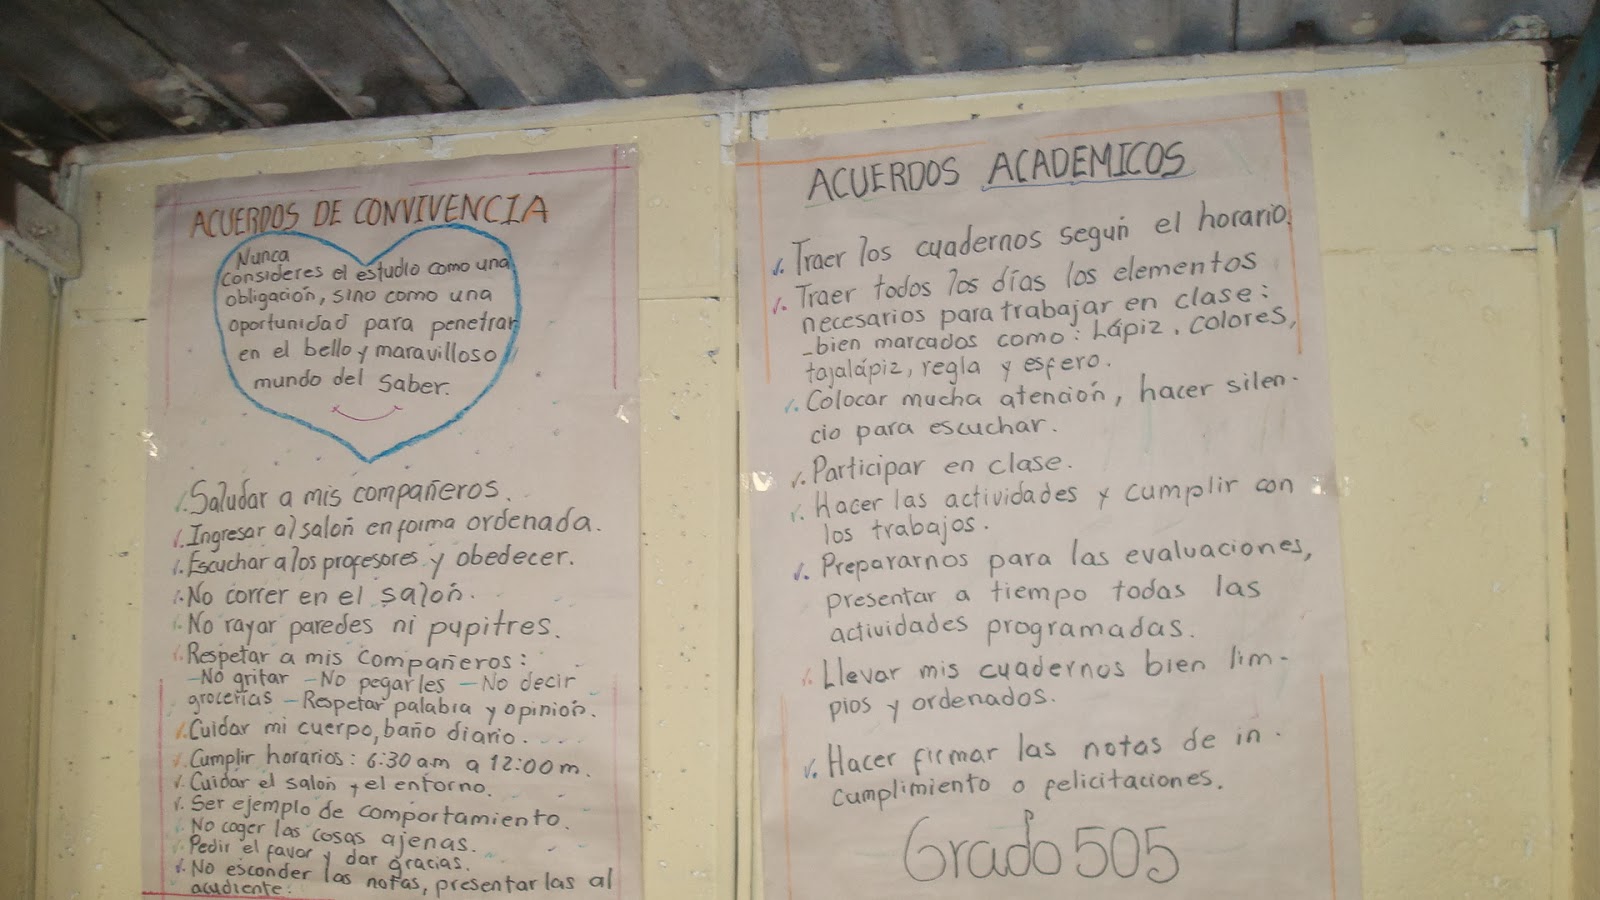 ACUERDOS DE CONVIVENCIA
Nunca
consideres el estudio como una
obligación, sino como una
oportunidad para penetrar
en el bello y maravilloso
mundo del saber.
Saludar a mis compañeros.
Ingresar al salón en forma ordenada.
Escuchar a los profesores y obedecer.
No correr en el salón.
No rayar paredes ni pupitres.
Respetar a mis compañeros:
-No gritar -No pegarles -No decir
grocerías -Respetar palabra y opinión.
Cuidar mi cuerpo, baño diario.
Cumplir horarios: 6:30 am a 12:00 m.
Cuidar el salón y el entorno.
Ser ejemplo de comportamiento.
No coger las cosas ajenas.
Pedir el favor y dar gracias.
No esconder las notas, presentarlas al
acudiente.
ACUERDOS ACADEMICOS
Traer los cuadernos según el horario.
Traer todos los días los elementos
necesarios para trabajar en clase:
-bien marcados como: Lápiz, colores,
tajalápiz, regla y esfero.
Colocar mucha atención, hacer silen-
cio para escuchar.
Participar en clase.
Hacer las actividades y cumplir con
los trabajos.
Prepararnos para las evaluaciones,
presentar a tiempo todas las
actividades programadas.
Llevar mis cuadernos bien lim-
pios y ordenados.
Hacer firmar las notas de in-
cumplimiento o felicitaciones.
Grado 505